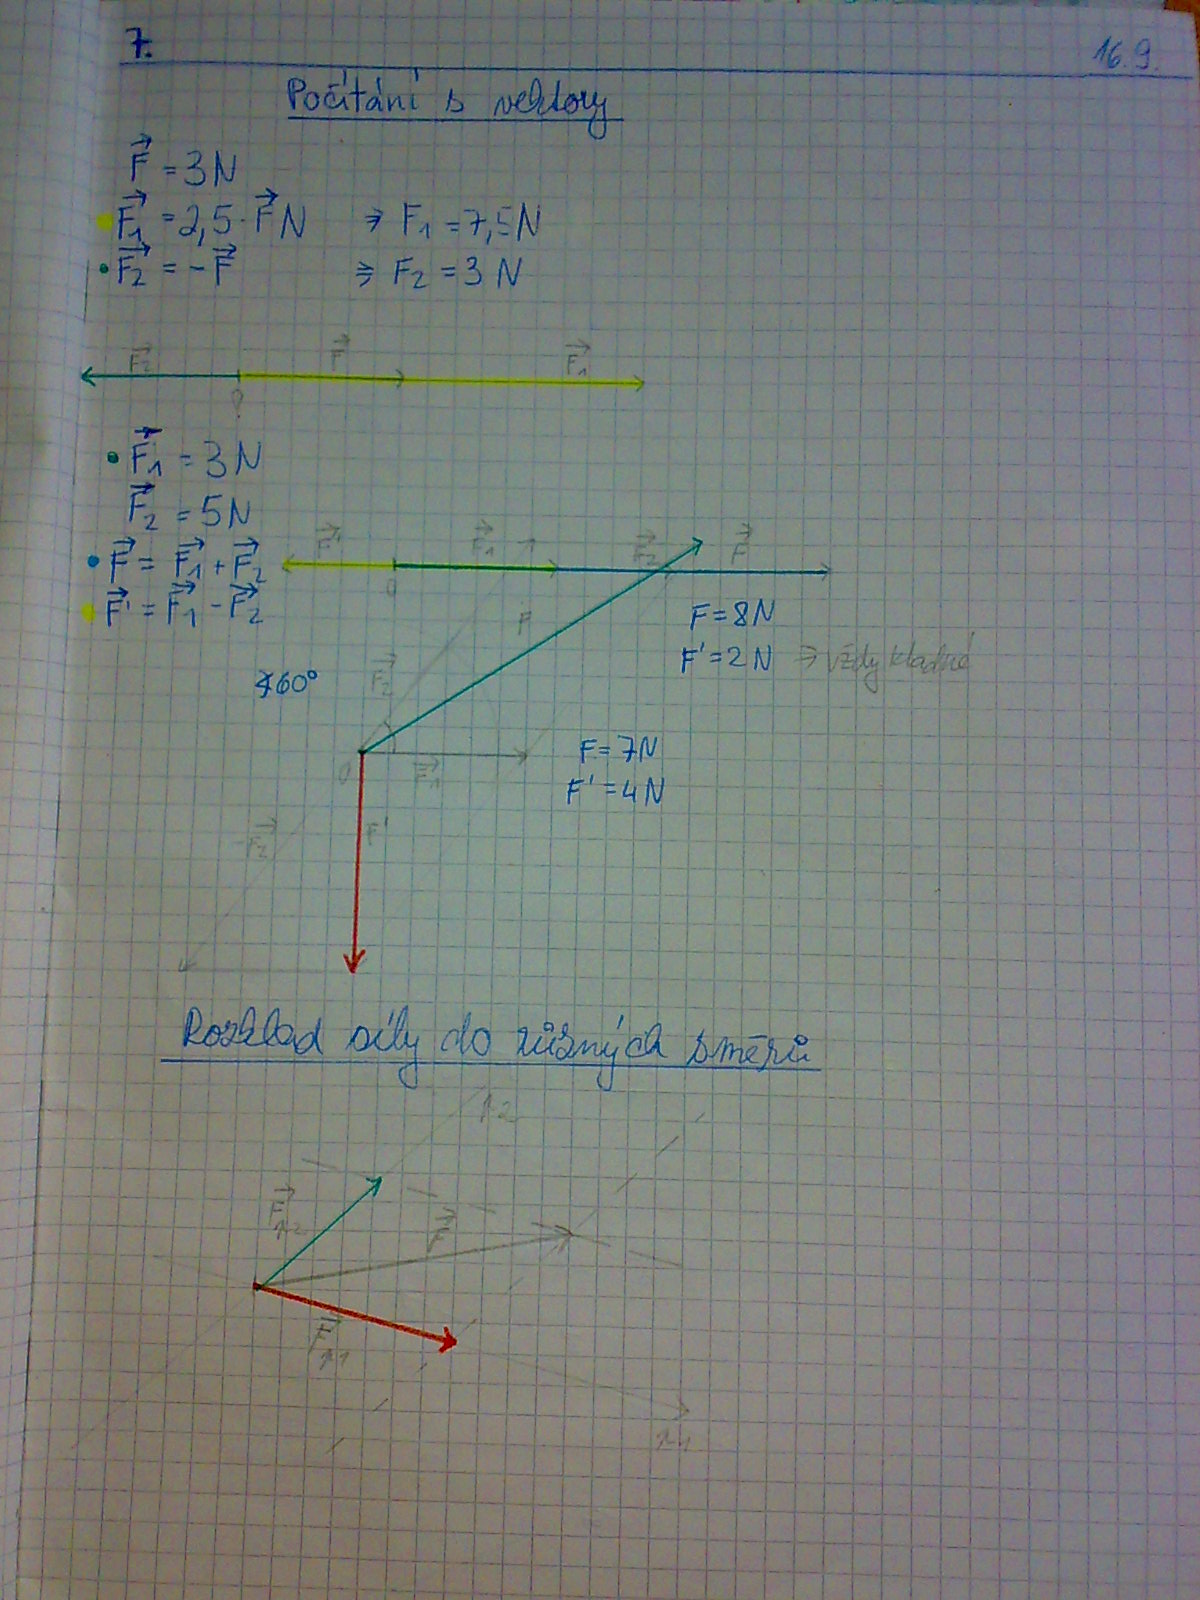 7. 16.9.
Počítání s vektory
F = 3N
F1 = 2,5·F N ⇒ F1 = 7,5N
F2 = -F ⇒ F2 = 3 N
F2 F F1
0
F1 = 3N
F2 = 5N
F = F1 + F2
F' = F1 - F2
F' F1 F2 F
0
F = 8N
F' = 2N ⇒ vždy kladné
∢60°
F
F2
0 F1
F = 7N
F' = 4N
F'
-F2
Rozklad síly do různých směrů
p2
Fp2 F
Fp1
p1